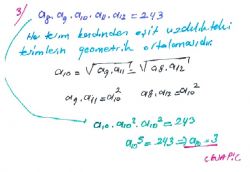 3/ a₈.a₉.a₁₀.a₁₁.a₁₂ = 243
Her terim kendinden eşit uzaklıktaki
terimlerin geometrik ortalamasıdır.
a₁₀ = √a₉.a₁₁ = √a₈.a₁₂
a₉.a₁₁ = a₁₀² a₈.a₁₂ = a₁₀²
a₁₀.a₁₀².a₁₀² = 243
a₁₀⁵ = 243 ⇒ a₁₀ = 3